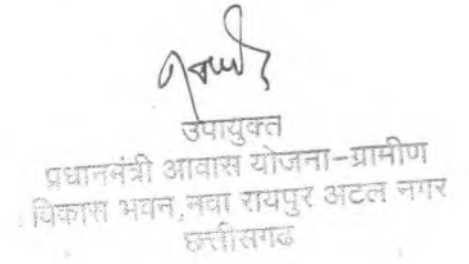 उपायुक्त
प्रधानमंत्री आवास योजना-ग्रामीण
विकास भवन, नवा रायपुर अटल नगर
छत्तीसगढ